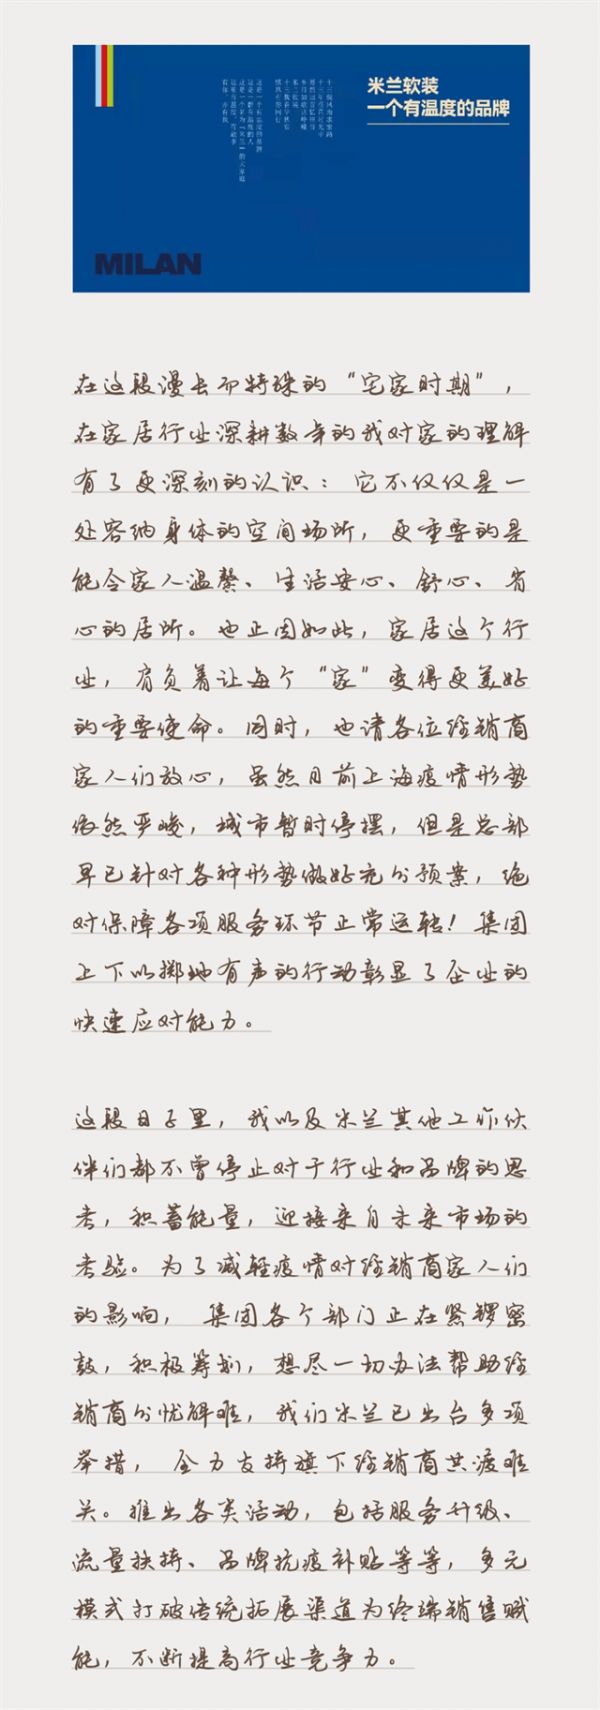 米兰软装
一个有温度的品牌
MILAN
在这段漫长而特殊的“宅家时期”，
在家居行业深耕数年的我对家的理解
有了更深刻的认识：它不仅仅是一
处容纳身体的空间场所，更重要的是
能令家人温馨、生活安心、舒心、省
心的居所。也正因如此，家居这个行
业，肩负着让每个“家”变得更美好
的重要使命。同时，也请各位经销商
家人们放心，虽然目前上海疫情形势
依然严峻，城市暂时停摆，但是总部
早已针对各种形势做好充分预案，绝
对保障各项服务环节正常运转！集团
上下以掷地有声的行动彰显了企业的
快速应对能力。
这段日子里，我以及米兰其他工作伙
伴们都不曾停止对于行业和品牌的思
考，积蓄能量，迎接来自未来市场的
考验。为了减轻疫情对经销商家人们
的影响，集团各个部门正在紧锣密
鼓，积极筹划，想尽一切办法帮助经
销商分忧解难，我们米兰已出台多项
举措，全力支持旗下经销商共渡难
关。推出各类活动，包括服务升级、
流量扶持、品牌抗疫补贴等等，多元
模式打破传统拓展渠道为终端销售赋
能，不断提高行业竞争力。